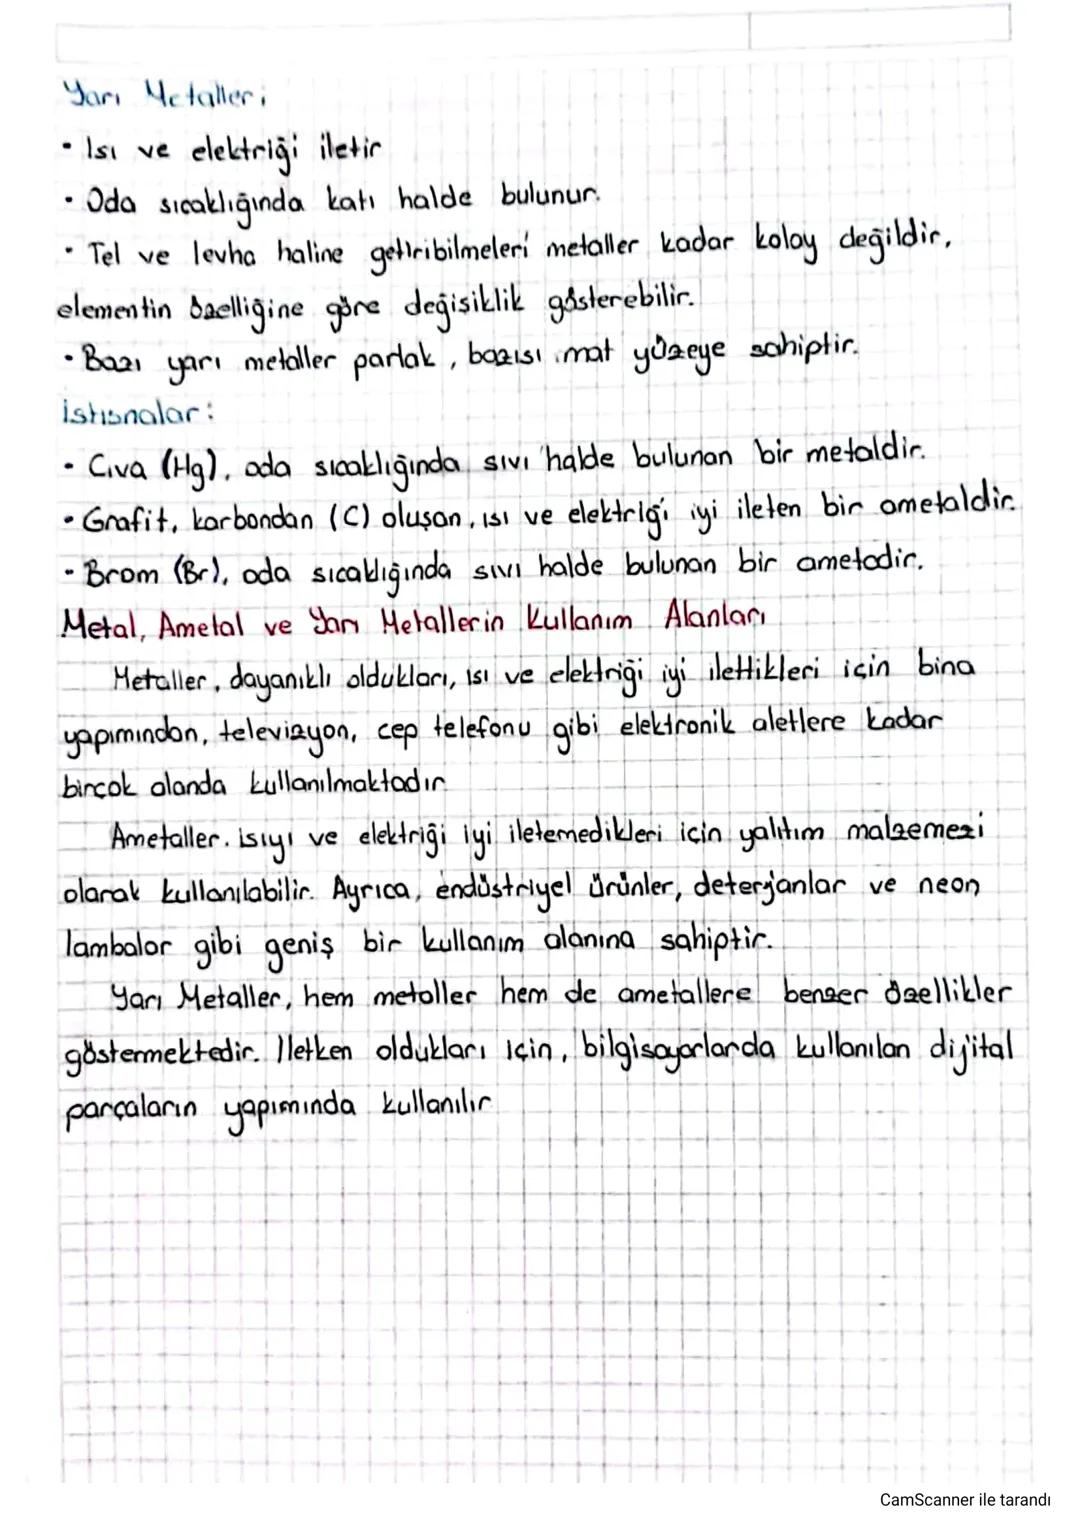 Yarı Metaller;
• Isı ve elektriği iletir
• Oda sıcaklığında katı halde bulunur.
• Tel ve levha haline getiribilmeleri metaller kadar kolay değildir,
elementin özelliğine göre değişiklik gösterebilir.
• Bazı yarı metaller parlak, bazısı mat yüzeye sahiptir.
İstisnalar:
• Cıva (Hg), oda sıcaklığında sıvı halde bulunan bir metaldir.
• Grafit, karbondan (C) oluşan, ısı ve elektriği iyi ileten bir ametaldir.
• Brom (Br), oda sıcaklığında sıvı halde bulunan bir ametadir.
Metal, Ametal ve Yarı Metallerin Kullanım Alanları
Metaller, dayanıklı oldukları, ısı ve elektriği iyi ilettikleri için bina
yapımından, televizyon, cep telefonu gibi elektronik aletlere kadar
birçok alanda kullanılmaktadır
Ametaller. ısıyı ve elektriği iyi iletemedikleri için yalıtım malzemezi
olarak kullanılabilir. Ayrıca, endüstriyel ürünler, deterjanlar ve neon
lambalar gibi geniş bir kullanım alanına sahiptir.
Yarı Metaller, hem metaller hem de ametallere benzer özellikler
göstermektedir. İletken oldukları için, bilgisayarlarda kullanılan dijital
parçaların yapımında kullanılır
CamScanner ile tarandı